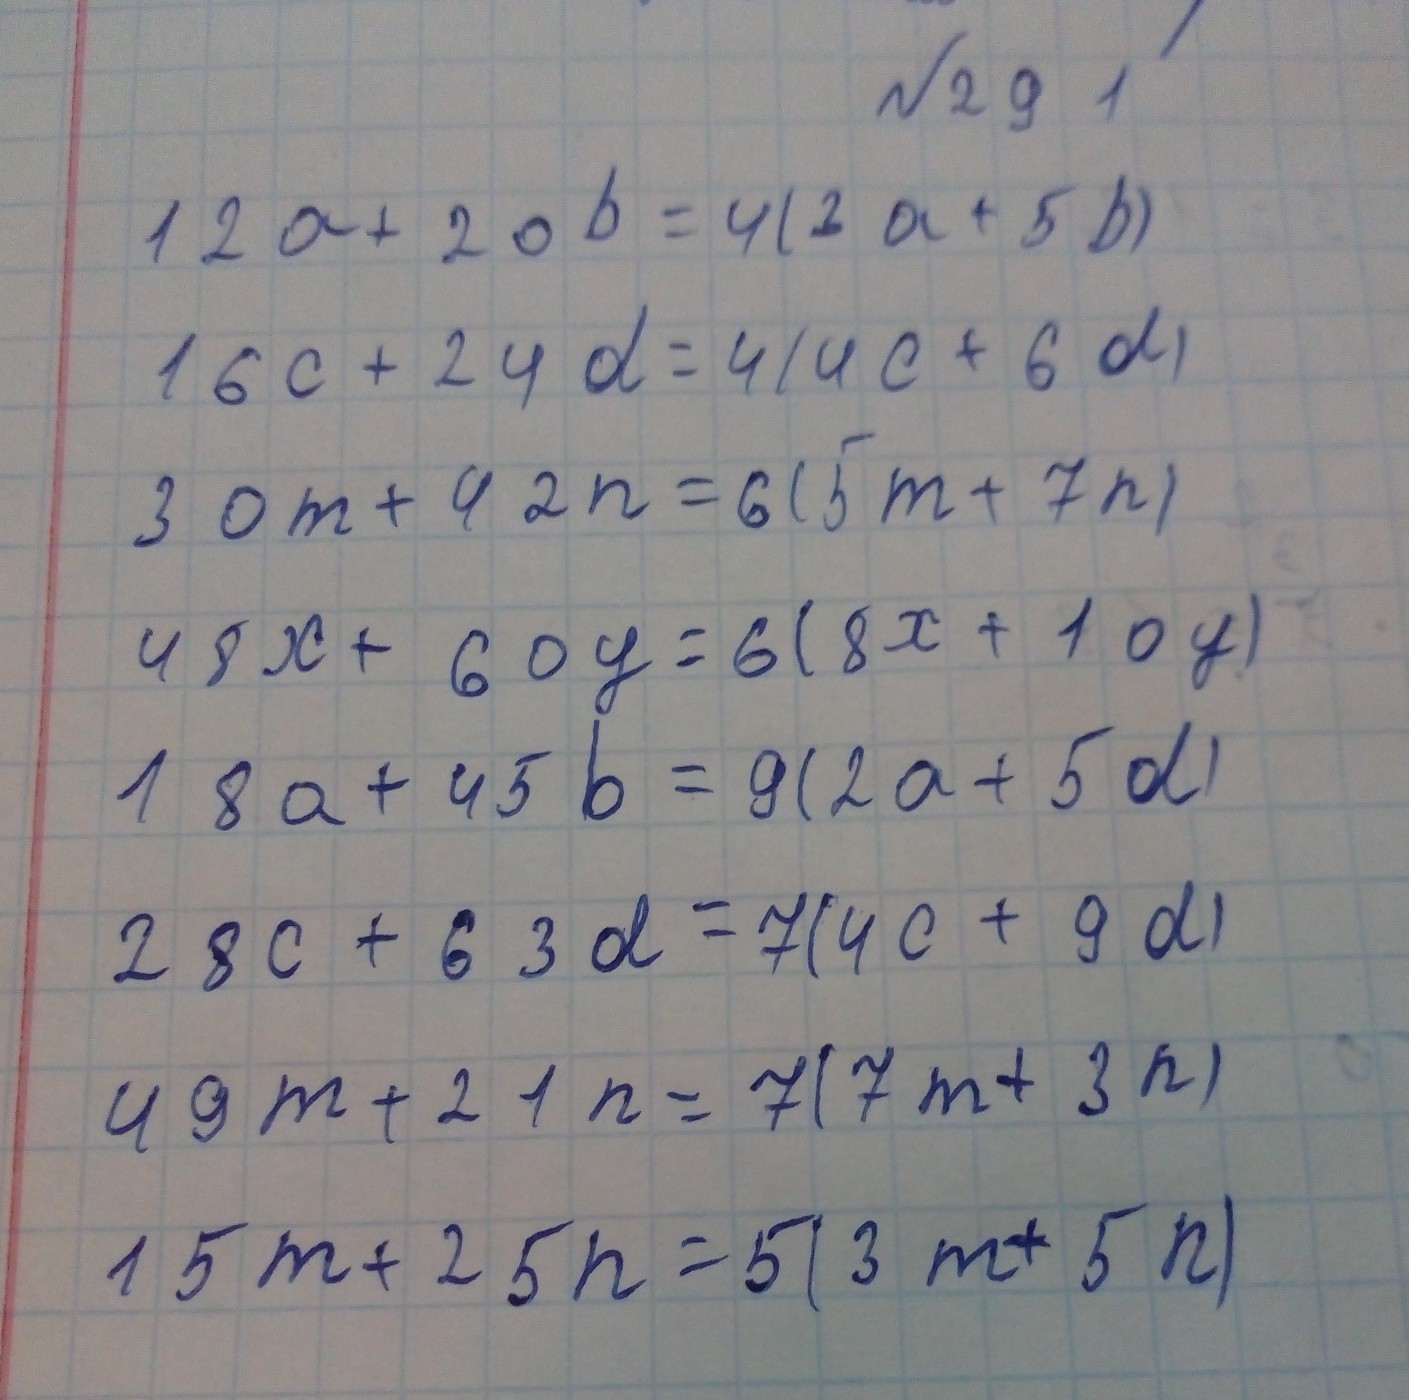 №291
12a+20b=4(3a+5b)
16c+24d=4(4c+6d)
30m+42n=6(5m+7n)
48x+60y=6(8x+10y)
18a+45b=9(2a+5d)
28c+63d=7(4c+9d)
49m+21n=7(7m+3n)
15m+25n=5(3m+5n)